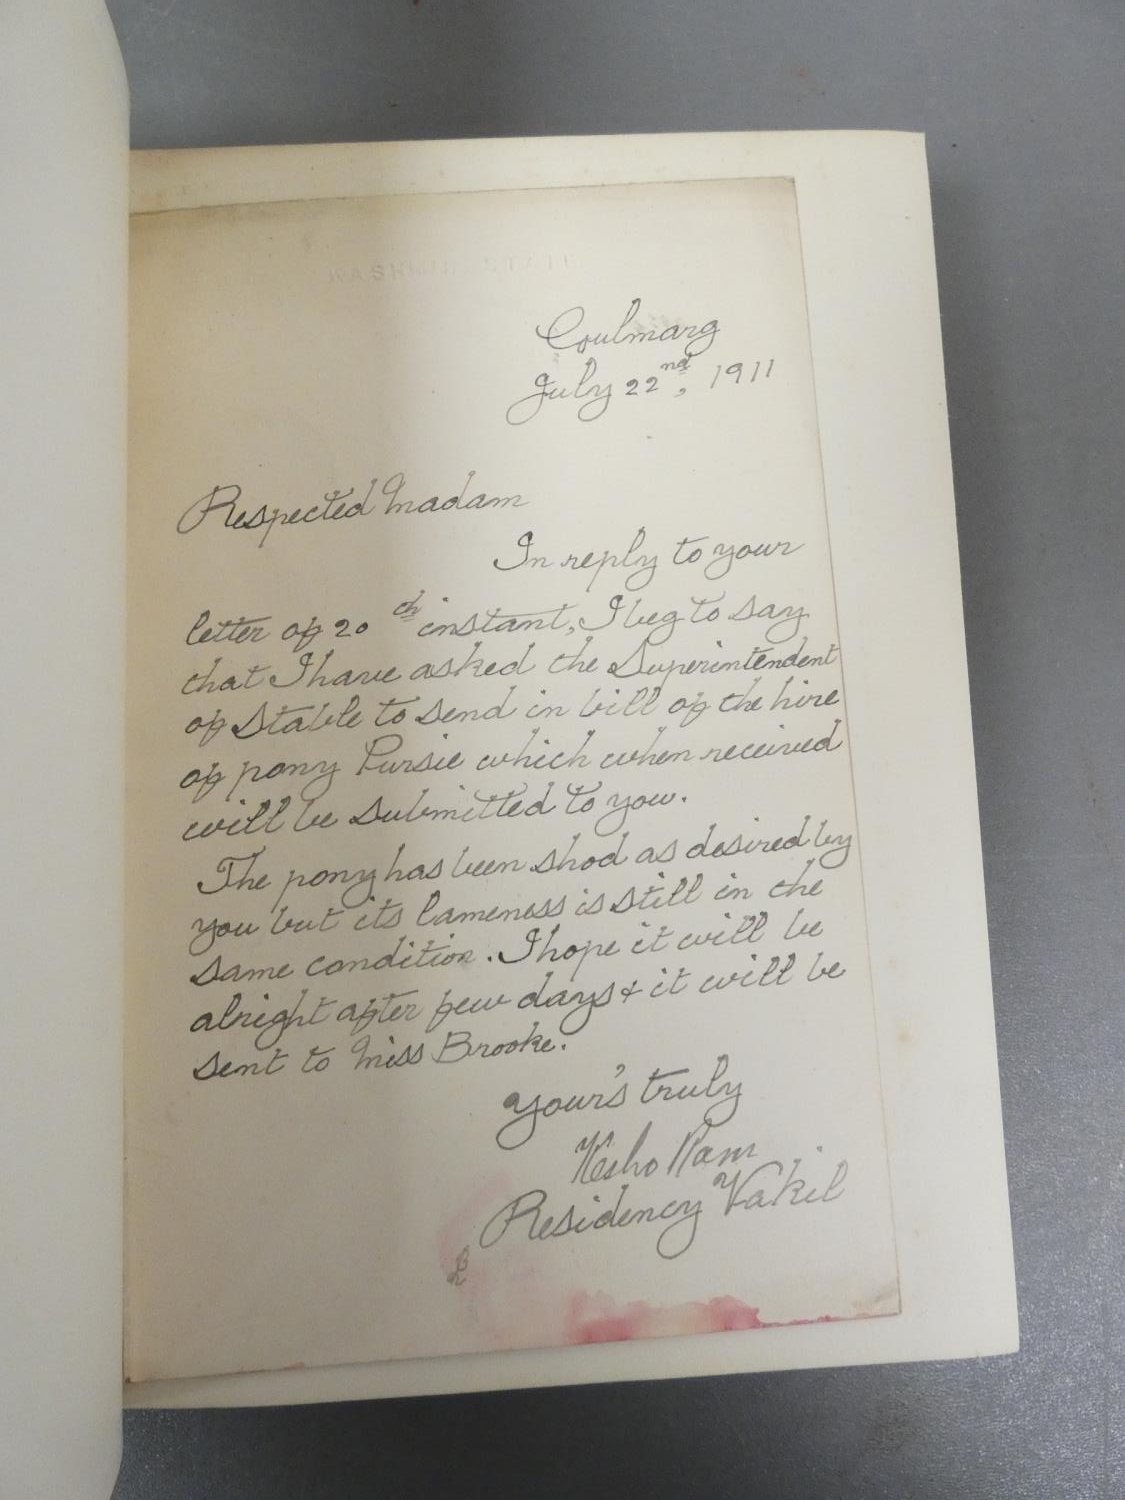 KASHMIR STATE
Goulmarg
July 22nd, 1911
Respected Madam
In reply to your
letter of 20th instant, I beg to say
that I have asked the Superintendent
of Stable to send in bill of the hire
of pony Pursie which when received
will be submitted to you.
The pony has been shod as desired by
you but its lameness is still in the
same condition. I hope it will be
alright after few days & it will be
sent to Miss Brooke.
Your's truly
Kesho Ram
Residency Vakil